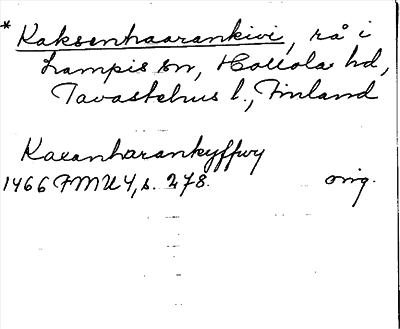 * Kaksenhaarankivi, rå i
Lampis sn, Hollola hd,
Tavastehus l., Finland
Kaxanharankyffwy
1466 FMU 4, s. 278. orig.